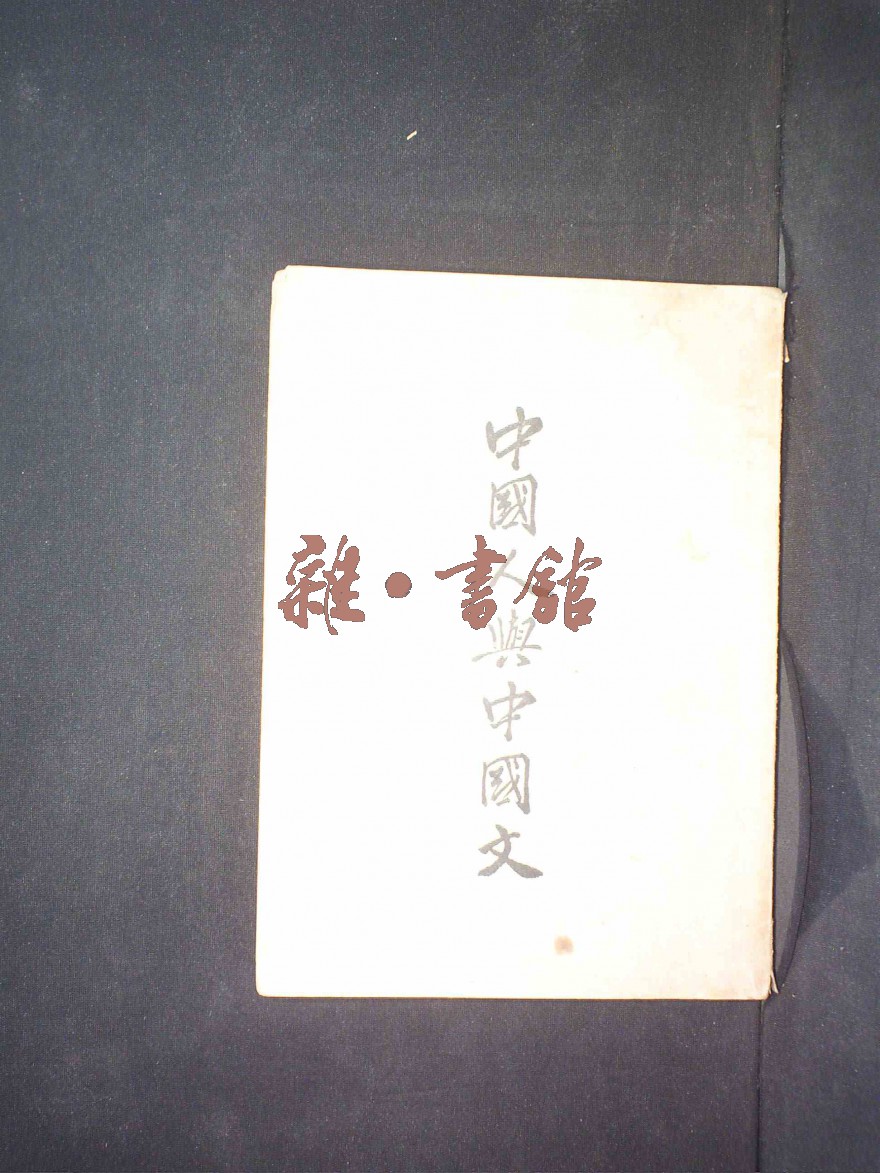 中國人與中國文
雜·書館